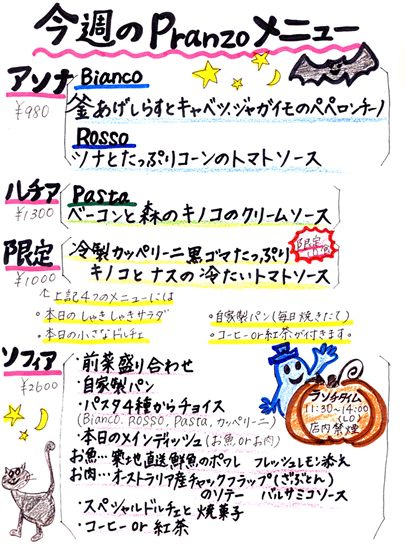 今週のPranzoメニュー
アソナ
¥980
Bianco
釜あげしらすとキャベツ、ジャガイモのペペロンチーノ
Rosso
ツナとたっぷりコーンのトマトソース
ルチア
¥1300
Pasta
ベーコンと森のキノコのクリームソース
限定
¥1000
冷製カッペリーニ黒ゴマたっぷり
キノコとナスの冷たいトマトソース
限定
10食
↑上記4つのメニューには
・本日のしゃきしゃきサラダ
・自家製パン(毎日焼きたて)
・本日の小さなドルチェ
・コーヒーor紅茶が付きます。
ソフィア
¥2600
・前菜盛り合わせ
・自家製パン
・パスタ4種からチョイス
(Bianco, Rosso, Pasta, カッペリーニ)
・本日のメインディッシュ(お魚orお肉)
お魚…築地直送鮮魚のポワレ フレッシュレモン添え
お肉…オーストラリア産チャックフラップ(ざぶとん)
のソテー バルサミコソース
・スペシャルドルチェと焼菓子
・コーヒーor紅茶
ランチタイム
11:30~14:00
(LO)
店内禁煙